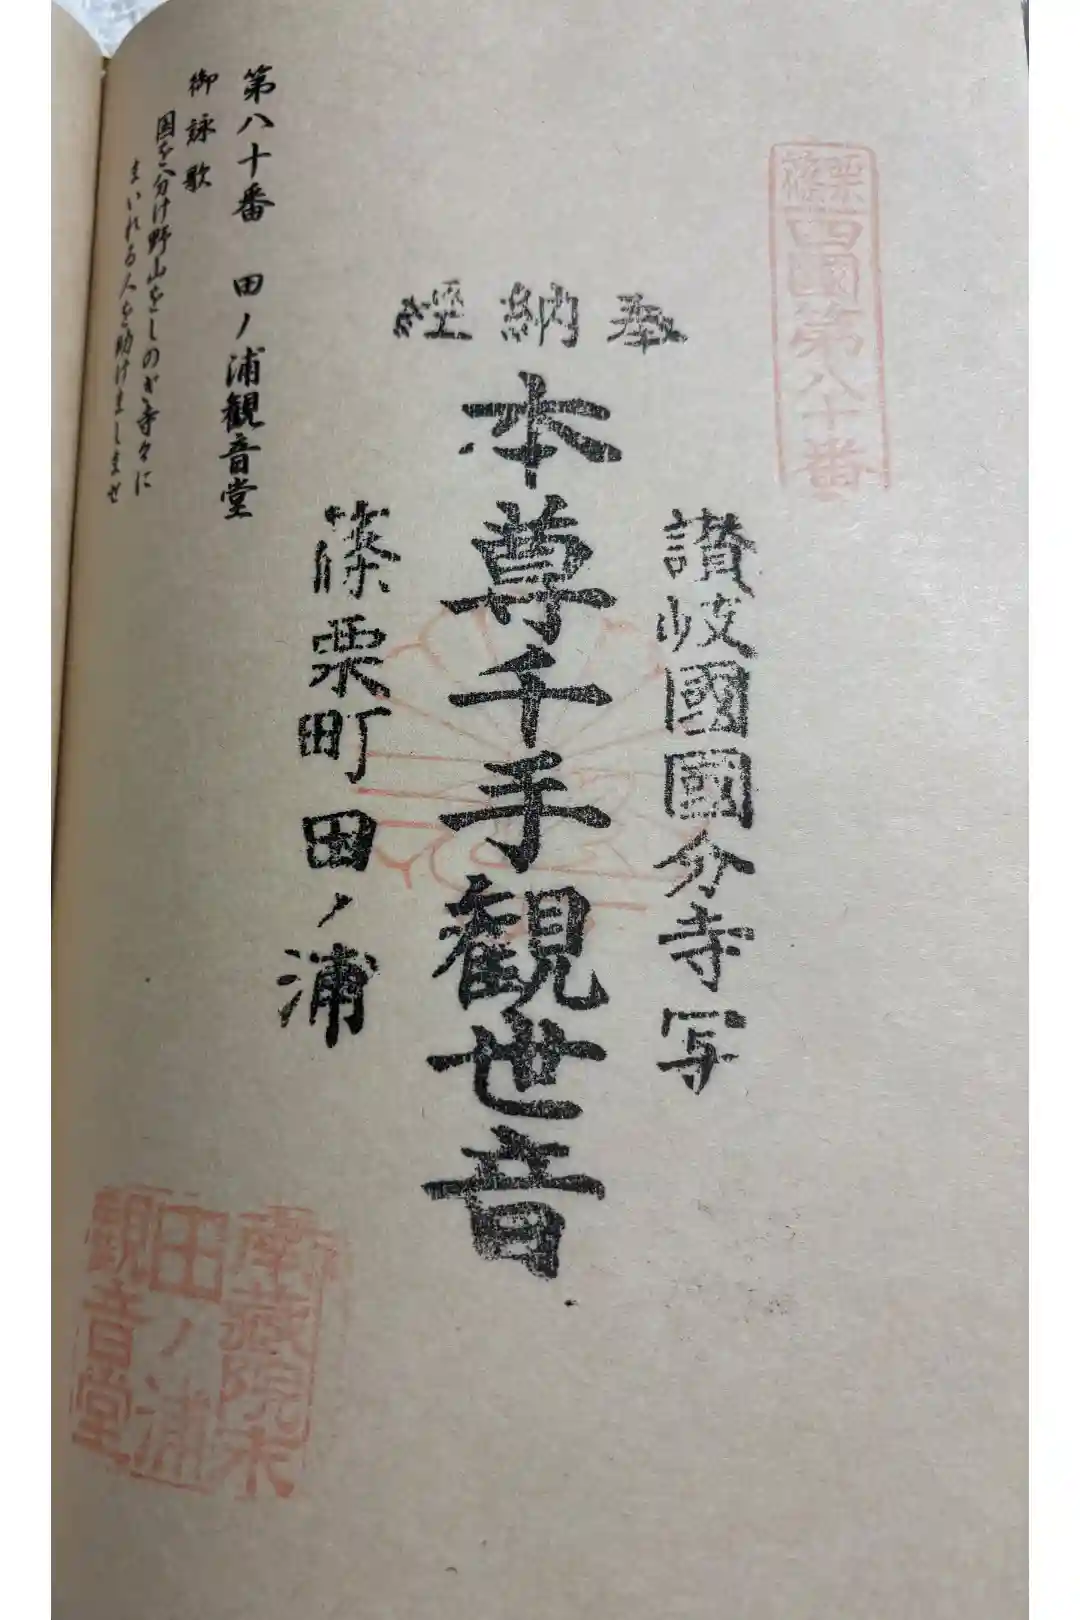 篠栗四國第八十番
奉納経
讃岐國國分寺写
本尊千手観世音
篠栗町田ノ浦
第八十番 田ノ浦観音堂
御詠歌
国を分け野山をしのぎ寺々に
まいれる人を助けましませ
南蔵院末
田ノ浦
観音堂